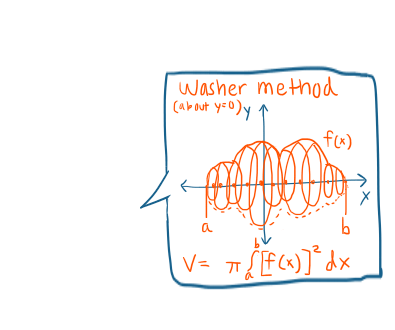 Washer method
(about y=0) y
f(x)
x
a b
V= π∫ₐᵇ[f(x)]² dx